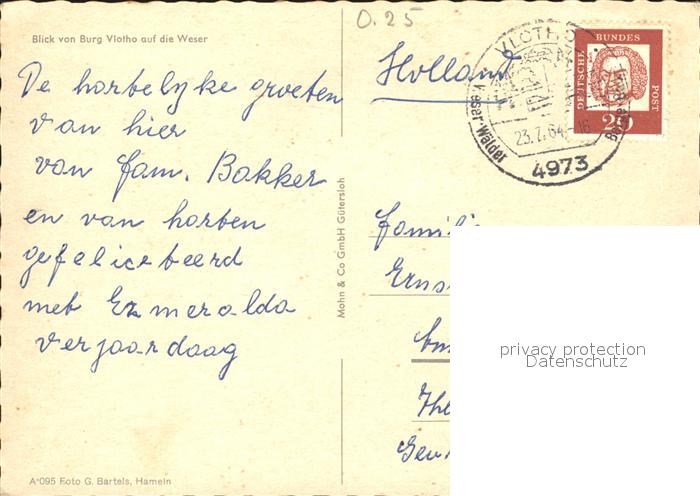 0.25
Blick von Burg Vlotho auf die Weser
De hartelyke groeten
van hier
van fam. Bakker
en van harten
gefeliciteerd
met Ezmeralda
verjaardaag
A°095 Foto G. Bartels, Hameln
Mohn & Co GmbH Gütersloh
Holland
VLOTHO
Weser·Wälder
23.7.64-16
4973
DEUTSCHE BUNDES POST
20
Familie
privacy protection
Datenschutz